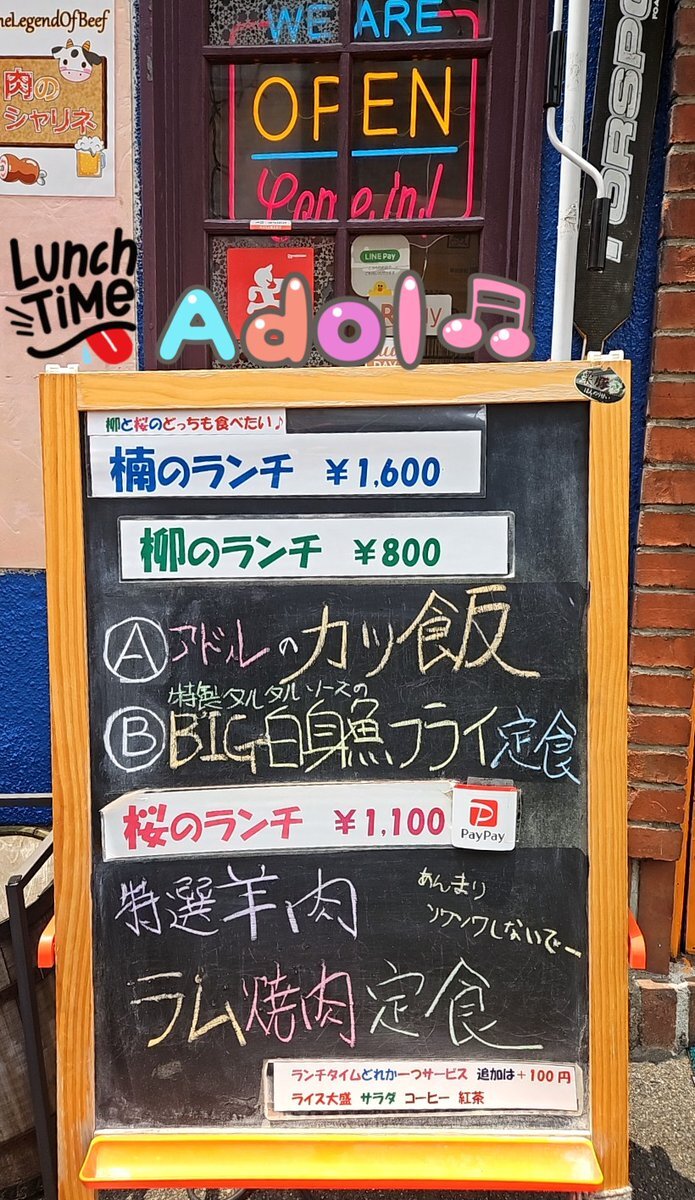 heLegendOfBeef
肉の
シャリネ
WE ARE
OPEN
Come in!
LINE Pay
TORSPO
LUNCH
TIME
Adol
柳と桜のどっちも食べたい♪
楠のランチ ￥1,600
柳のランチ ￥800
Ⓐアドルのカツ飯
特製タルタルソースの
ⒷBIG白身魚フライ定食
桜のランチ ￥1,100
PayPay
特選羊肉
あんまり
ソワソワしないでー
ラム焼肉定食
ランチタイムどれか一つサービス 追加は＋100円
ライス大盛 サラダ コーヒー 紅茶